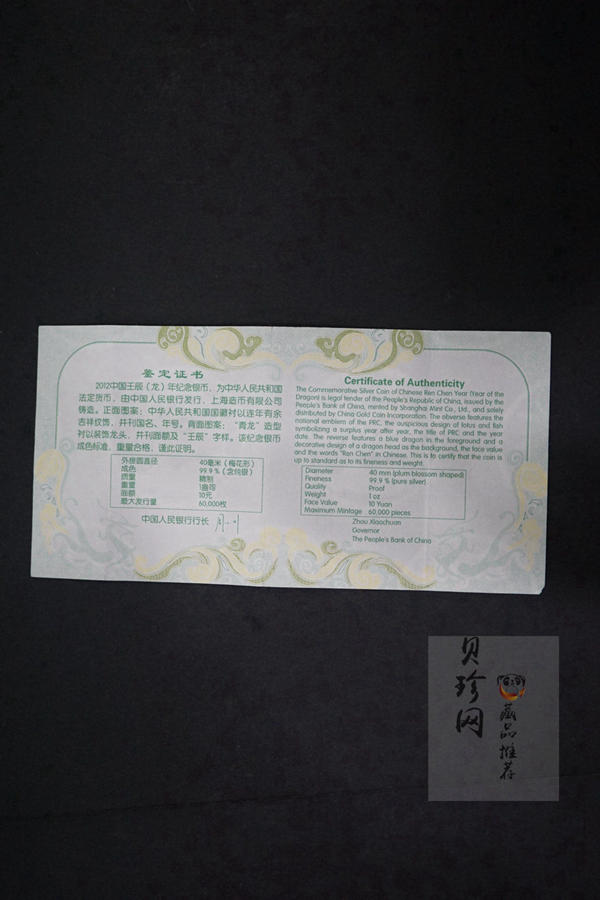 鉴定证书
2012中国壬辰（龙）年纪念银币，为中华人民共和国
法定货币，由中国人民银行发行，上海造币有限公司
铸造。正面图案：中华人民共和国国徽衬以连年有余
吉祥纹饰，并刊国名、年号。背面图案：“青龙”造型
衬以装饰龙头，并刊面额及“壬辰”字样。该纪念银币
成色标准，重量合格，谨此证明。
外接圆直径 40毫米（梅花形）
成色 99.9％（含纯银）
质量 精制
重量 1盎司
面额 10元
最大发行量 60,000枚
中国人民银行行长
Certificate of Authenticity
The Commemorative Silver Coin of Chinese Ren Chen Year (Year of the
Dragon) is legal tender of the People's Republic of China, issued by the
People's Bank of China, minted by Shanghai Mint Co., Ltd., and solely
distributed by China Gold Coin Incorporation. The obverse features the
national emblem of the PRC, the auspicious design of lotus and fish
symbolizing a surplus year after year, the title of PRC and the year
date. The reverse features a blue dragon in the foreground and a
decorative design of a dragon head as the background, the face value
and the words "Ren Chen" in Chinese. This is to certify that the coin is
up to standard as to its fineness and weight.
Diameter 40 mm (plum blossom shaped)
Fineness 99.9 % (pure silver)
Quality Proof
Weight 1 oz
Face Value 10 Yuan
Maximum Mintage 60,000 pieces
Zhou Xiaochuan
Governor
The People's Bank of China
贝珍网
藏品推荐